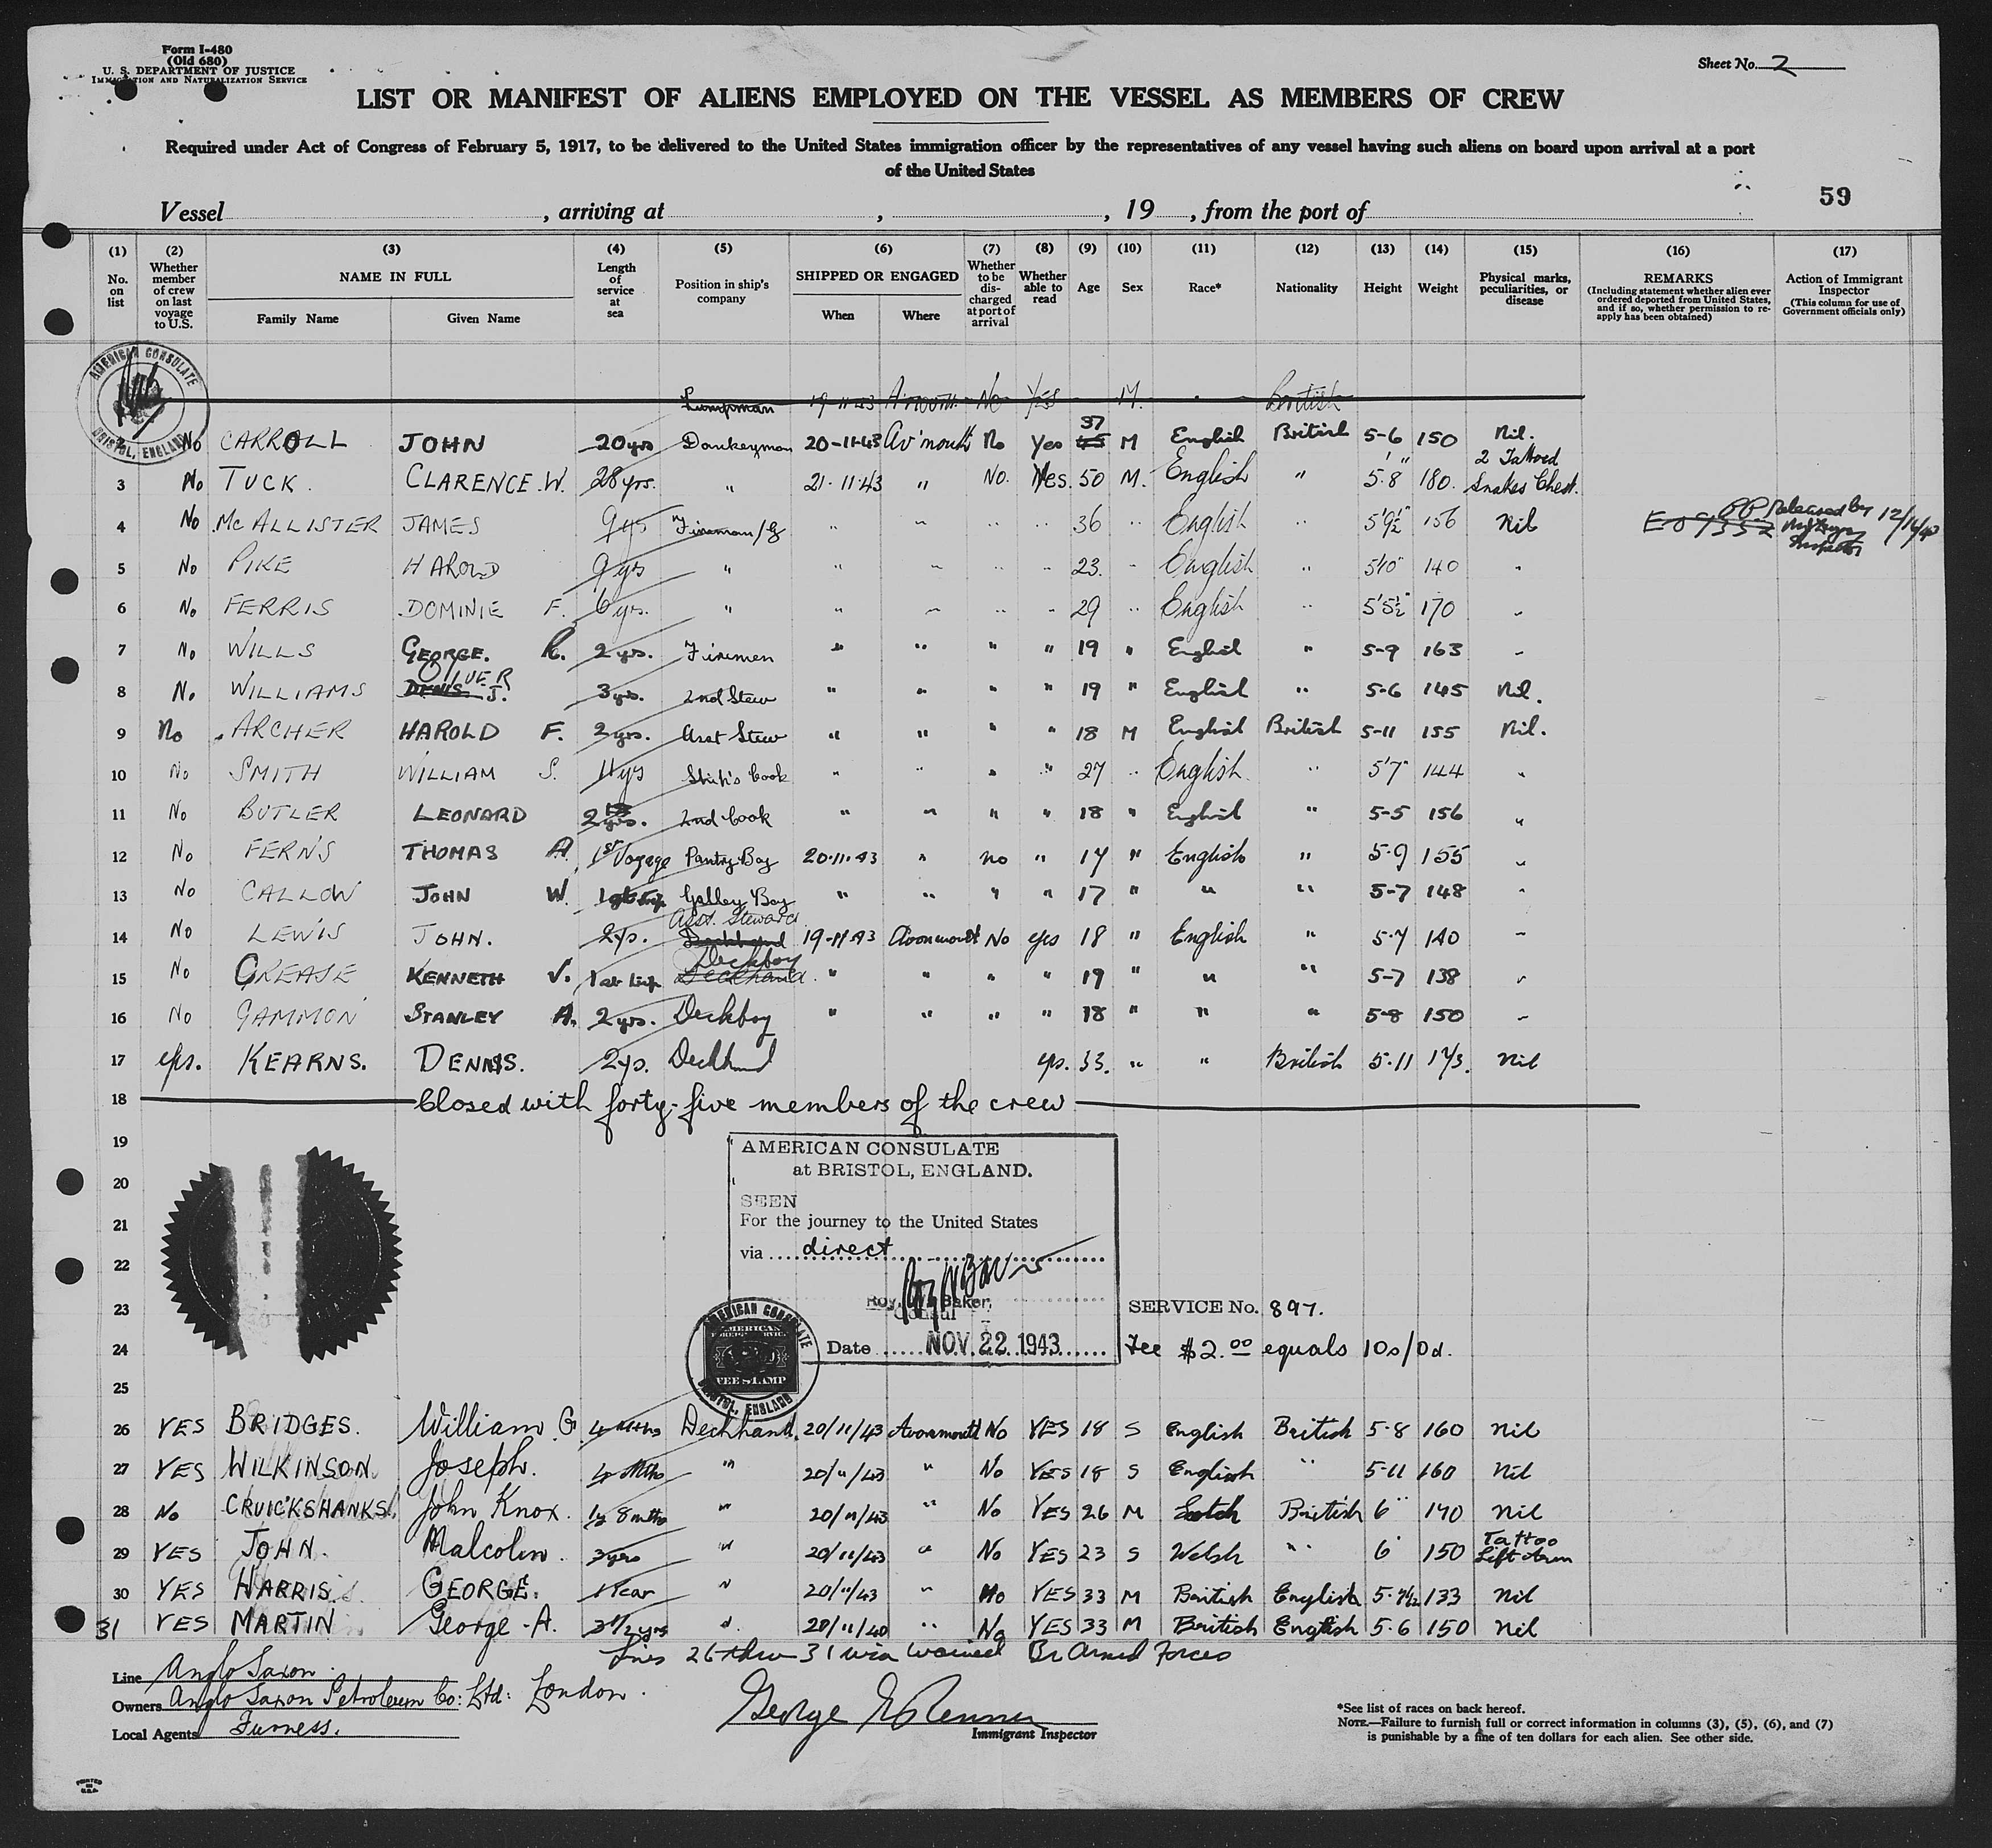 Form I-480
(Old 680)
U. S. DEPARTMENT OF JUSTICE
IMMIGRATION AND NATURALIZATION SERVICE
Sheet No. 2
LIST OR MANIFEST OF ALIENS EMPLOYED ON THE VESSEL AS MEMBERS OF CREW
Required under Act of Congress of February 5, 1917, to be delivered to the United States immigration officer by the representatives of any vessel having such aliens on board upon arrival at a port
of the United States
59
Vessel , arriving at , , 19 , from the port of
(1) (2) (3) (4) (5) (6) (7) (8) (9) (10) (11) (12) (13) (14) (15) (16) (17)
No. on list
Whether member of crew on last voyage to U.S.
NAME IN FULL
Family Name Given Name
Length of service at sea
Position in ship's company
SHIPPED OR ENGAGED
When Where
Whether to be discharged at port of arrival
Whether able to read
Age
Sex
Race*
Nationality
Height
Weight
Physical marks, peculiarities, or disease
REMARKS
(Including statement whether alien ever ordered deported from United States, and if so, whether permission to reapply has been obtained)
Action of Immigrant Inspector
(This column for use of Government officials only)
AMERICAN CONSULATE
BRISTOL, ENGLAND
19-11-43 A'mouth No YES M. British
No CARROLL JOHN 20 yrs Donkeyman 20-11-43 Av'mouth No Yes 37 M English British 5-6 150 Nil.
3 No TUCK. CLARENCE W. 28 yrs. " 21-11-43 " No. Yes. 50 M. English " 5'8" 180. 2 Tattoed Snakes Chest.
4 No McALLISTER JAMES 9 yrs Fireman/G " " " " 36 " English " 5'9½" 156 Nil Released by 12/14/43 Inspector
5 No PIKE HAROLD 9 yrs " " " " " 23. " English " 5'10" 140 "
6 No FERRIS DOMINIE F. 6 yrs. " " " " " 29 " English " 5'5½" 170 "
7 No WILLS GEORGE. R. 2 yrs. Firemen " " " " 19 " English " 5-9 163 "
8 No. WILLIAMS DENIS OLIVER J. 3 yrs. 2nd Stew " " " " 19 " English " 5-6 145 Nil.
9 No ARCHER HAROLD F. 2 yrs. Asst Stew " " " " 18 M English British 5-11 155 Nil.
10 No SMITH WILLIAM S. 11 yrs Ship's Cook " " " " 27 " English " 5'7" 144 "
11 No BUTLER LEONARD 2 yrs. 2nd Cook " " " " 18 " English " 5-5 156 "
12 No FERNS THOMAS A. 1st Voyage Pantry Boy 20-11-43 " no " 17 " English " 5-9 155 "
13 No CALLOW JOHN W. Galley Boy " " " " 17 " " " 5-7 148 "
14 No LEWIS JOHN. 2 ys. Asst. Steward Deckhand 19-11-43 Avonmouth No yes 18 " English " 5-7 140 "
15 No GREASE KENNETH V. 1st trip Deckboy Deckhand " " " " 19 " " " 5-7 138 "
16 No GAMMON STANLEY A. 2 yrs. Deckboy " " " " 18 " " " 5-8 150 "
17 yes. KEARNS. DENNIS. 2 ys. Deckhand yes. 33. " " British 5-11 173. Nil
18 Closed with forty-five members of the crew
19
AMERICAN CONSULATE
at BRISTOL, ENGLAND.
20
SEEN
21 For the journey to the United States
via direct
22
Roy W. Baker,
Consul
23 SERVICE No. 897.
24 Date NOV. 22 1943 Fee $2.00 equals 10s/0d.
AMERICAN CONSULATE
AMERICAN FOREIGN SERVICE
FEE STAMP
BRISTOL, ENGLAND
25
26 YES BRIDGES. William G. 4 Mths Deckhand. 20/11/43 Avonmouth No YES 18 S English British 5-8 160 Nil
27 YES WILKINSON. Joseph. 4 Mths " 20/11/43 " No YES 18 S English " 5-11 160 Nil
28 No CRUICKSHANKS. John Knox. 1y 8 mths " 20/11/43 " No YES 26 M Scotch British 6" 170 Nil
29 YES JOHN. Malcolm. 3 yrs " 20/11/43 " No YES 23 S Welsh " 6' 150 Tattoo Left Arm
30 YES HARRIS. GEORGE. 1 Year " 20/11/43 " No YES 33 M British English 5-7½ 133 Nil
31 YES MARTIN George A. 3½ yrs " 20/11/40 " No YES 33 M British English 5-6 150 Nil
Lines 26 thru 31 visa waived Br Armed Forces
Line Anglo Saxon.
Owners Anglo Saxon Petroleum Co: Ltd: London.
Local Agents Furness.
George E Renner
Immigrant Inspector
*See list of races on back hereof.
NOTE.—Failure to furnish full or correct information in columns (3), (5), (6), and (7)
is punishable by a fine of ten dollars for each alien. See other side.
PRINTED IN U.S.A.